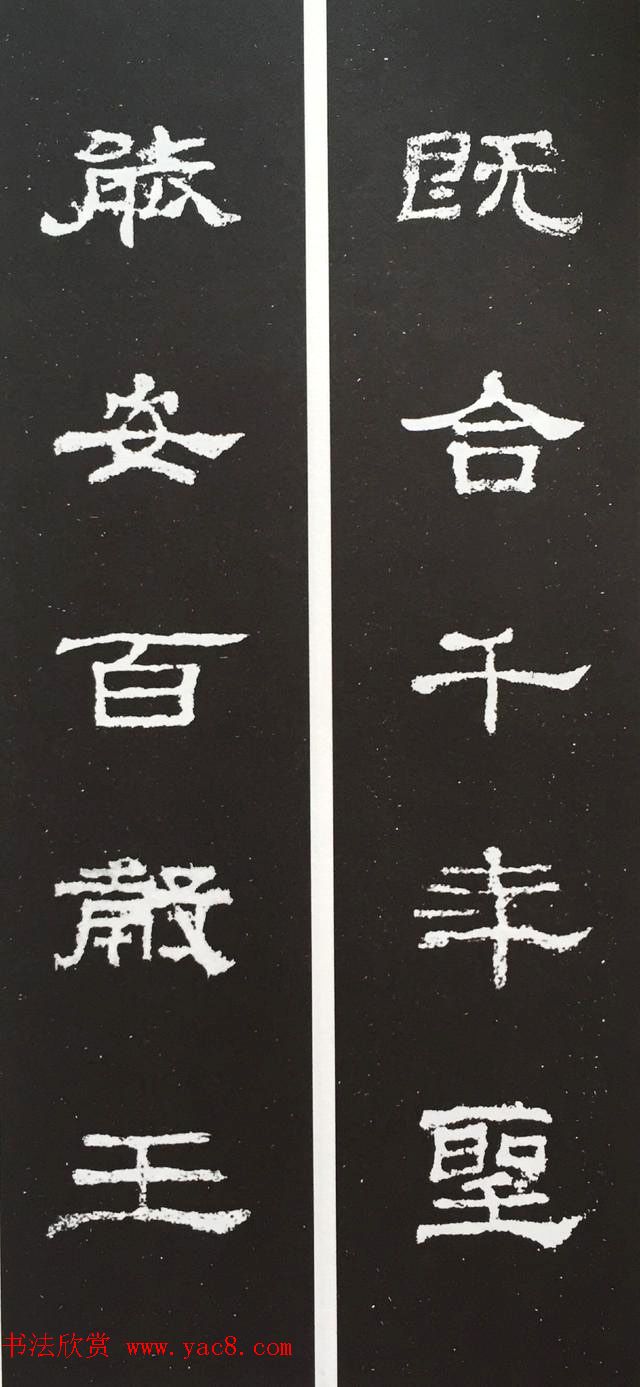 既合千年聖
能安百穀王
书法欣赏 www.yac8.com